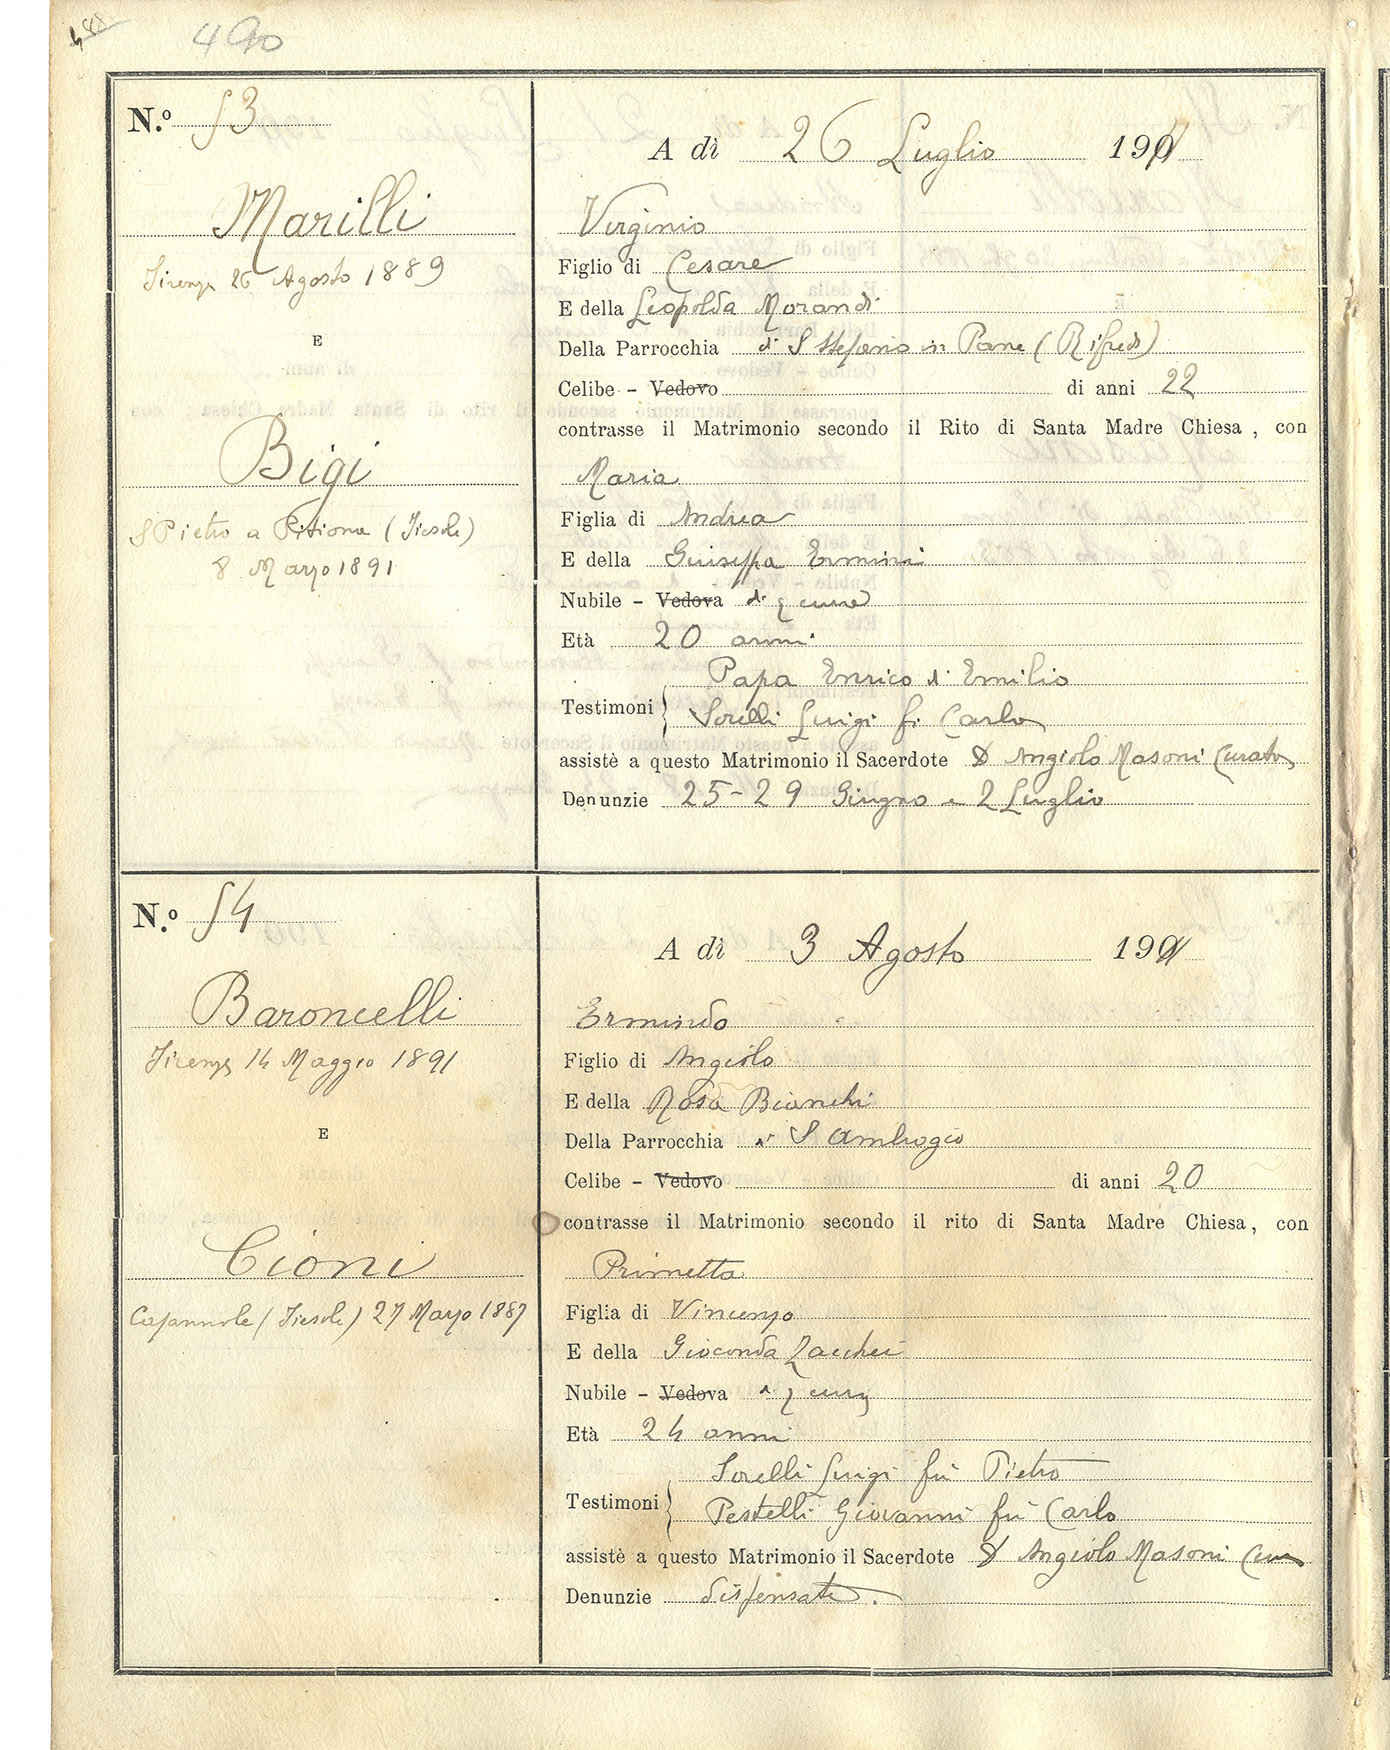 490
N.º 53
A dì 26 Luglio 1911
Marilli
Firenze 26 Agosto 1889
E
Bigi
S Pietro a Pitiona (Fiesole)
8 Marzo 1891
Virginio
Figlio di Cesare
E della Leopolda Morandi
Della Parrocchia di S Stefano in Pane (Rifredi)
Celibe – Vedovo di anni 22
contrasse il Matrimonio secondo il Rito di Santa Madre Chiesa, con
Maria
Figlia di Andrea
E della Giuseppa Ermini
Nubile – Vedova di q cura
Età 20 anni
Testimoni Papa Enrico di Emilio
Sorelli Luigi fu Carlo
assistè a questo Matrimonio il Sacerdote D Angiolo Masoni Curato
Denunzie 25-29 Giugno e 2 Luglio
N.º 54
A dì 3 Agosto 1911
Baroncelli
Firenze 14 Maggio 1891
E
Cioni
Capannole (Fiesole) 27 Marzo 1887
Ermindo
Figlio di Angiolo
E della Rosa Bianchi
Della Parrocchia di S Ambrogio
Celibe – Vedovo di anni 20
contrasse il Matrimonio secondo il rito di Santa Madre Chiesa, con
Primetta
Figlia di Vincenzo
E della Gioconda Zacchei
Nubile – Vedova di q cura
Età 24 anni
Testimoni Sorelli Luigi fu Pietro
Pestelli Giovanni fu Carlo
assistè a questo Matrimonio il Sacerdote D Angiolo Masoni Cur
Denunzie dispensate.